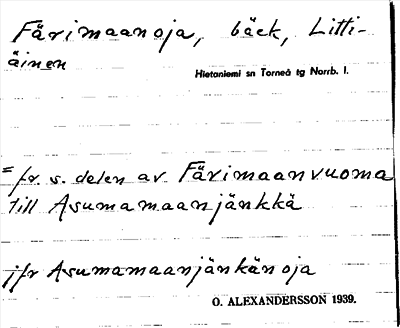 Färimaanoja, bäck, Litti-
äinen
Hietaniemi sn Torneå tg Norrb. l.
= fr. s. delen av Färimaanvuoma
till Asumamaanjänkkä
jfr Asumamaanjänkänoja
O. ALEXANDERSSON 1939.